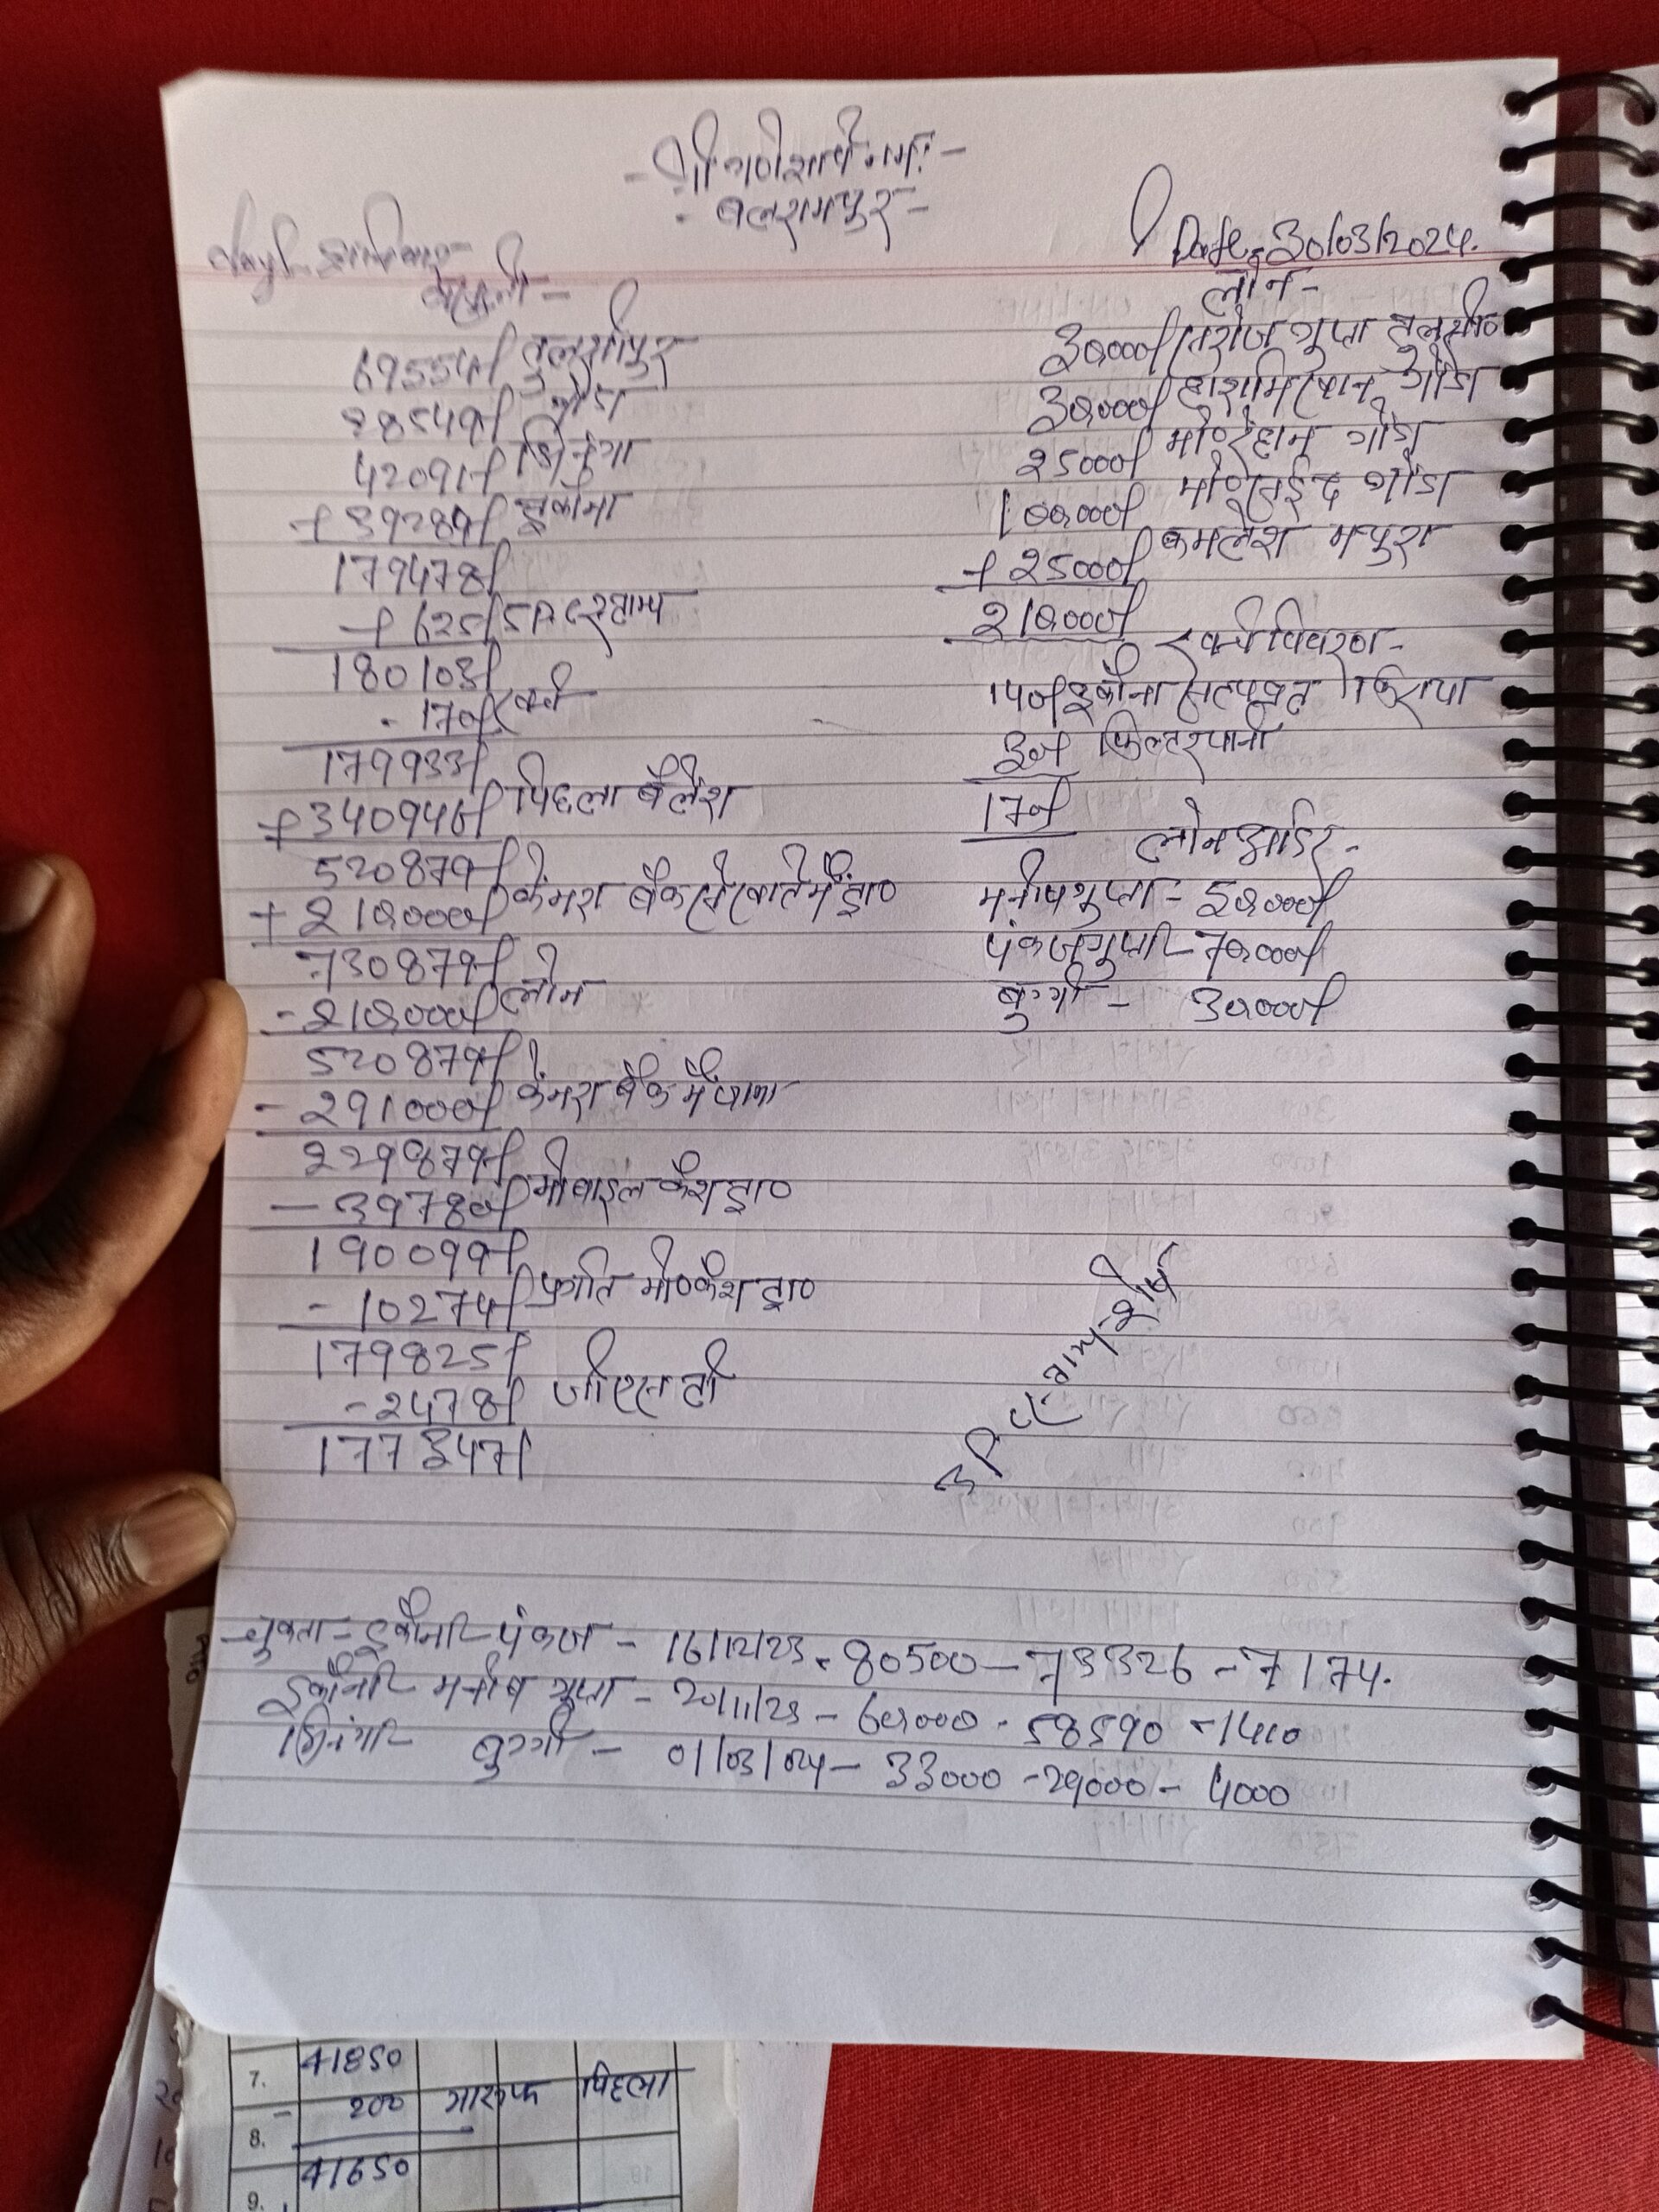 -श्री गणेशाये नमः-
- बलरामपुर -
Day- शनिवार
Date- 30/03/2024.
वसूली -
69554/ तुलसीपुर
28549/ गोंडा
42091/ भिनगा
+ 39284/ इकौना
179478/
+ 625/ स्टाम्प
180103/
- 170/ खर्च
179933/
+ 340946/ पिछला बैलेंश
520879/
+ 210000/ केनरा बैंक से खाते में ड्रा०
730879/
- 210000/ लोन
520879/
- 291000/ केनरा बैंक में जमा
229879/
- 39780/ मोबाइल कैश ड्रा०
190099/
- 10274/ प्रगति मो० कैश ड्रा०
179825/
- 2478/ जीएसटी
177347/
लोन -
30000/ सरोज गुप्ता तुलसी०
30000/ गोंडा
25000/ मो० रेहान गोंडा
100000/ मो० सईद गोंडा
+ 25000/ कमलेश मथुरा
210000/
खर्च विवरण -
140/ इकौना सत्यव्रत किराया
30/ फिल्टर पानी
170/
लोन आर्डर -
मनीष गुप्ता - 50000/
पंकज गुप्ता - 70000/
बुग्गी - 30000/
चुकता - इकौना - पंकज - 16/12/23 - 80500 - 73326 - 7174.
इकौना - मनीष गुप्ता - 20/11/23 - 60000 - 58590 - 1410
भिनगा - बुग्गी - 01/03/024 - 33000 - 29000 - 4000
7. 41850
8. - 200 मारुफ पिछला
9. 41650